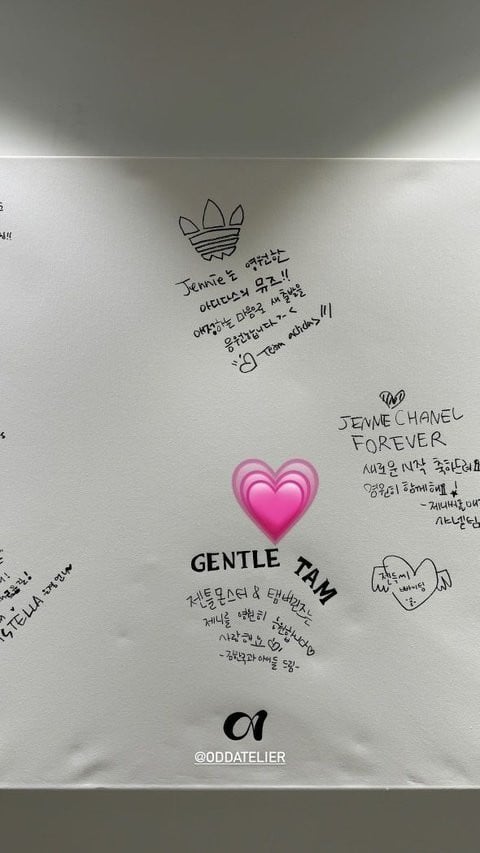 Jennie는 영원한
아디다스의 뮤즈!!
애정하는 마음으로 새 출발을
응원합니다
Team adidas
JENNIE CHANEL
FOREVER
새로운 시작 축하드려요
영원히 함께해요!
샤넬팀
GENTLE TAM
젠틀몬스터 & 탬버린즈는
제니를 영원히 응원합니다
사랑해요
-김한국과 아이들 드림-
젠득씨
빠이팅
STELLA
@ODDATELIER